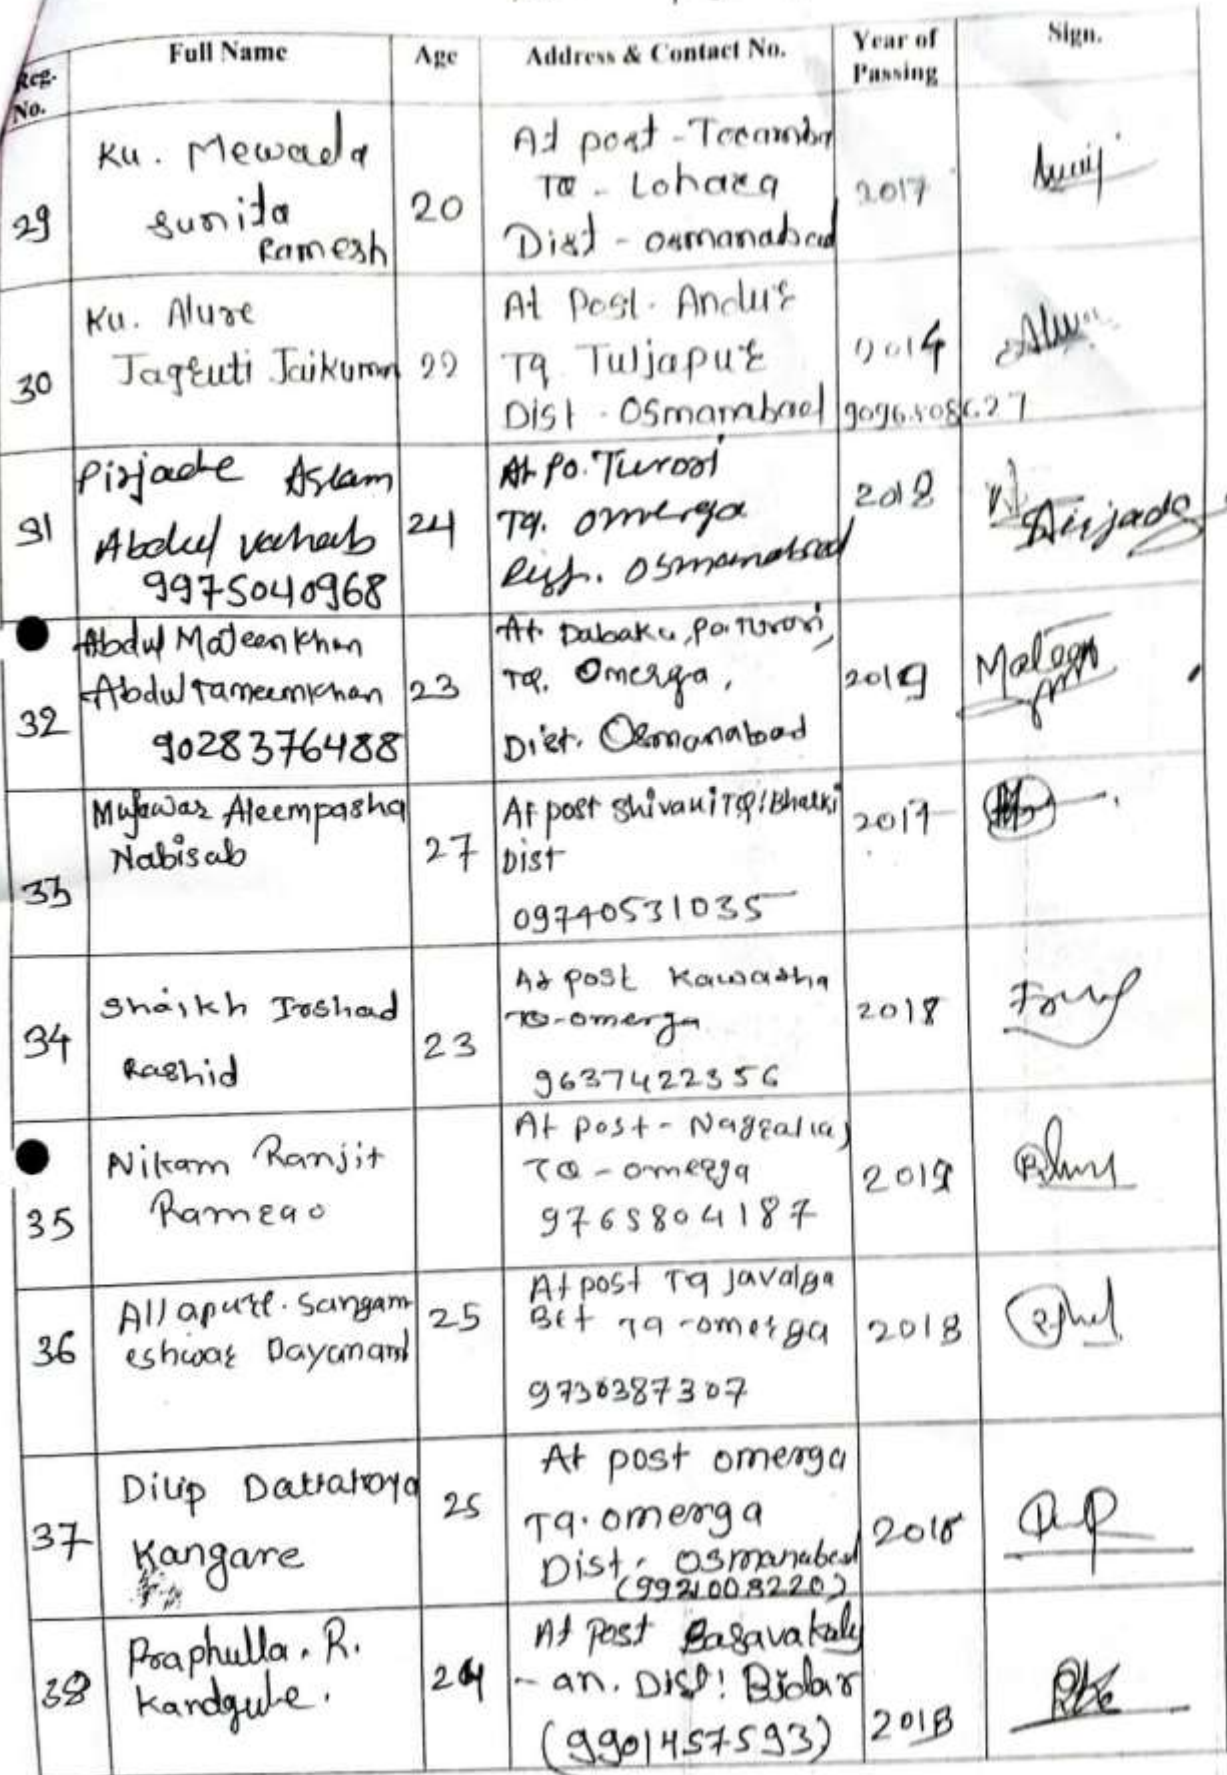 Reg. No. Full Name Age Address & Contact No. Year of Passing Sign.
29 Ku. Mewada Sunita Ramesh 20 At post - Toramba
Tq - Lohara
Dist - Osmanabad 2017
30 Ku. Alure Jagruti Jaikumar 22 At Post. Andur
Tq Tuljapur
Dist - Osmanabad 2014
31 Pirjade Aslam
Abdul Vahab
9975040968 24 At Po. Turori
Tq. Omerga
Dist. Osmanabad 2018 Pirjade
32 Abdul Mateenkhan
Abdul Tameemkhan
9028376488 23 At. Dabaka, Po. Turori,
Tq. Omerga,
Dist. Osmanabad 2019 Mateen
33 Mujawar Aleempasha
Nabisab 27 At post Shivani TQ! Bhalki
Dist
09740531035 2017
34 Shaikh Irshad
Rashid 23 At post Kawatha
TQ-omerga
9637422356 2018
35 Nikam Ranjit
Ramrao At post -
TQ - omerga
9765804187 2019
36 Allapure. Sangam
eshwar Dayanand 25 At post Tq Javalga
Bet Tq - omerga
9730387307 2018
37 Dilip Dattatraya
Kangare 25 At post omerga
Tq. omerga
Dist. Osmanabad
(9921008220) 2018
38 Praphulla. R.
Kandgule. 24 At Post Basavakaly
- an. Dist! Bidar
(9901457593) 2018